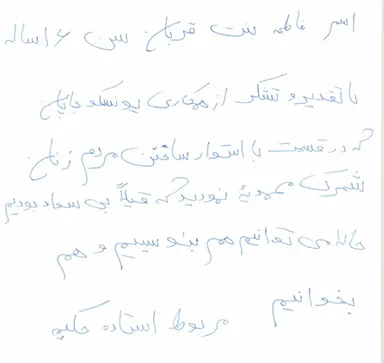 اسم فاطمه بنت قربان سن ۱۶ ساله
با تقدیر و تشکر از همکاری یونسکو جاپان
که در قسمت با استوار ساختن مردم زنان
شمرک نمودید که قبلاً بی سواد بودیم
حالا می توانیم هم بنویسیم و هم
بخوانیم
مربوط استاده حکیم